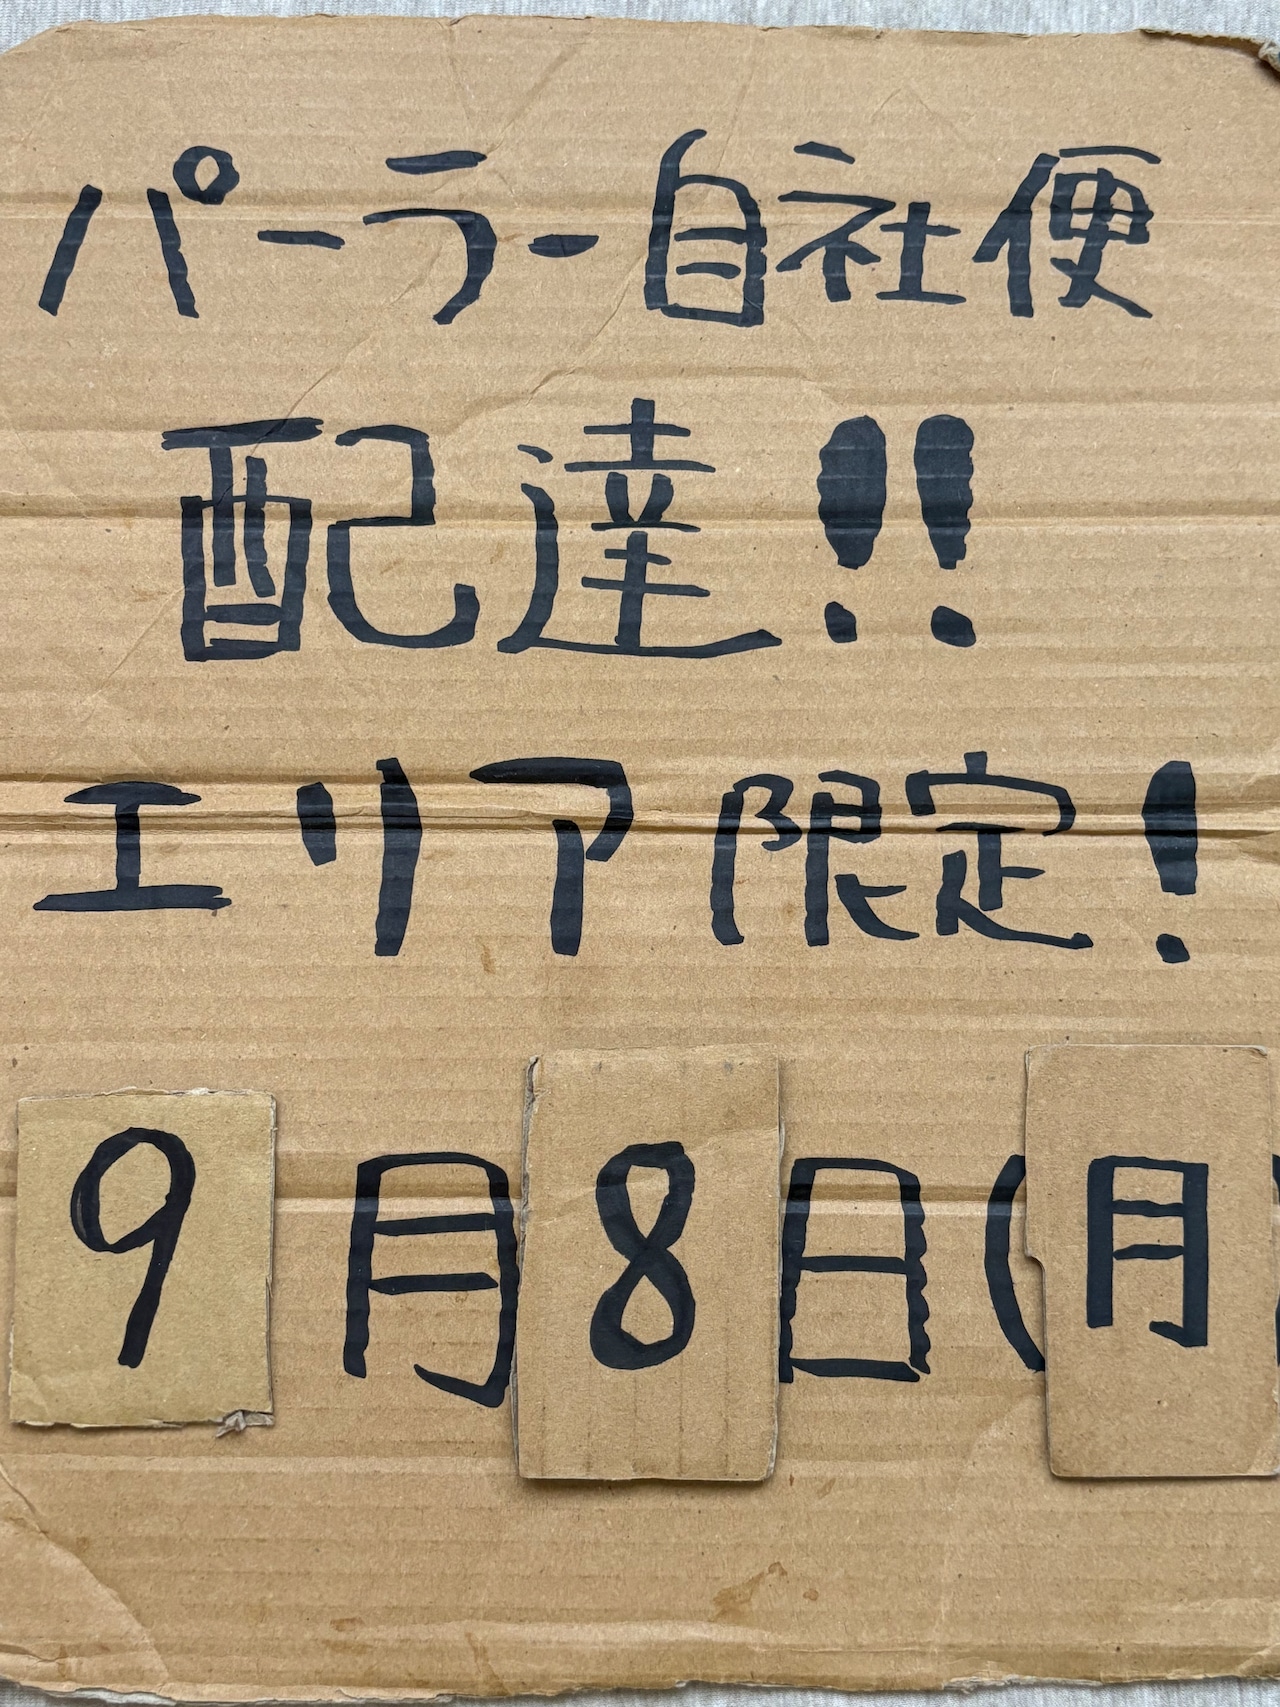 パーラー自社便
配達!!
エリア限定!
9月8日(月)